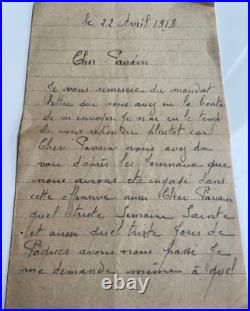 le 22 Avril 1918
Cher Parrain
Je vous remercie du mandat
lettre que vous avez eu la bonté
de m'envoyer je n'ai eu le temps
de vous répondre plutot car
Cher Parrain vous avez du
voir d'après les Journaux que
nous avions été dans
cette offensive aussi Cher Parrain
quel triste semaine Sainte
et aussi quel triste Jour de
Paques avons nous passé Je
me demande même à quel